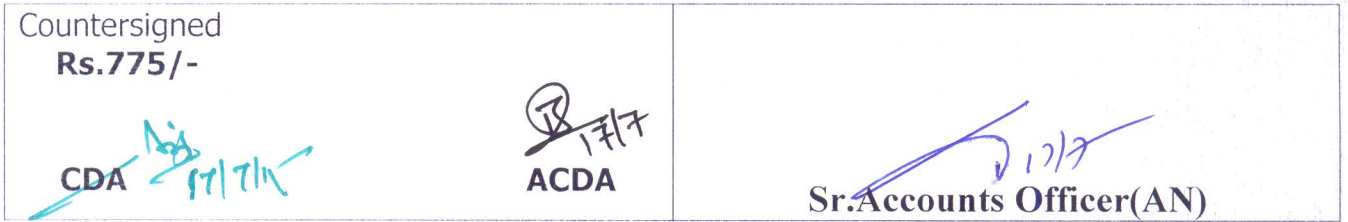 Countersigned
Rs.775/-
17/7/15
CDA
17/7
ACDA
17/7
Sr.Accounts Officer(AN)